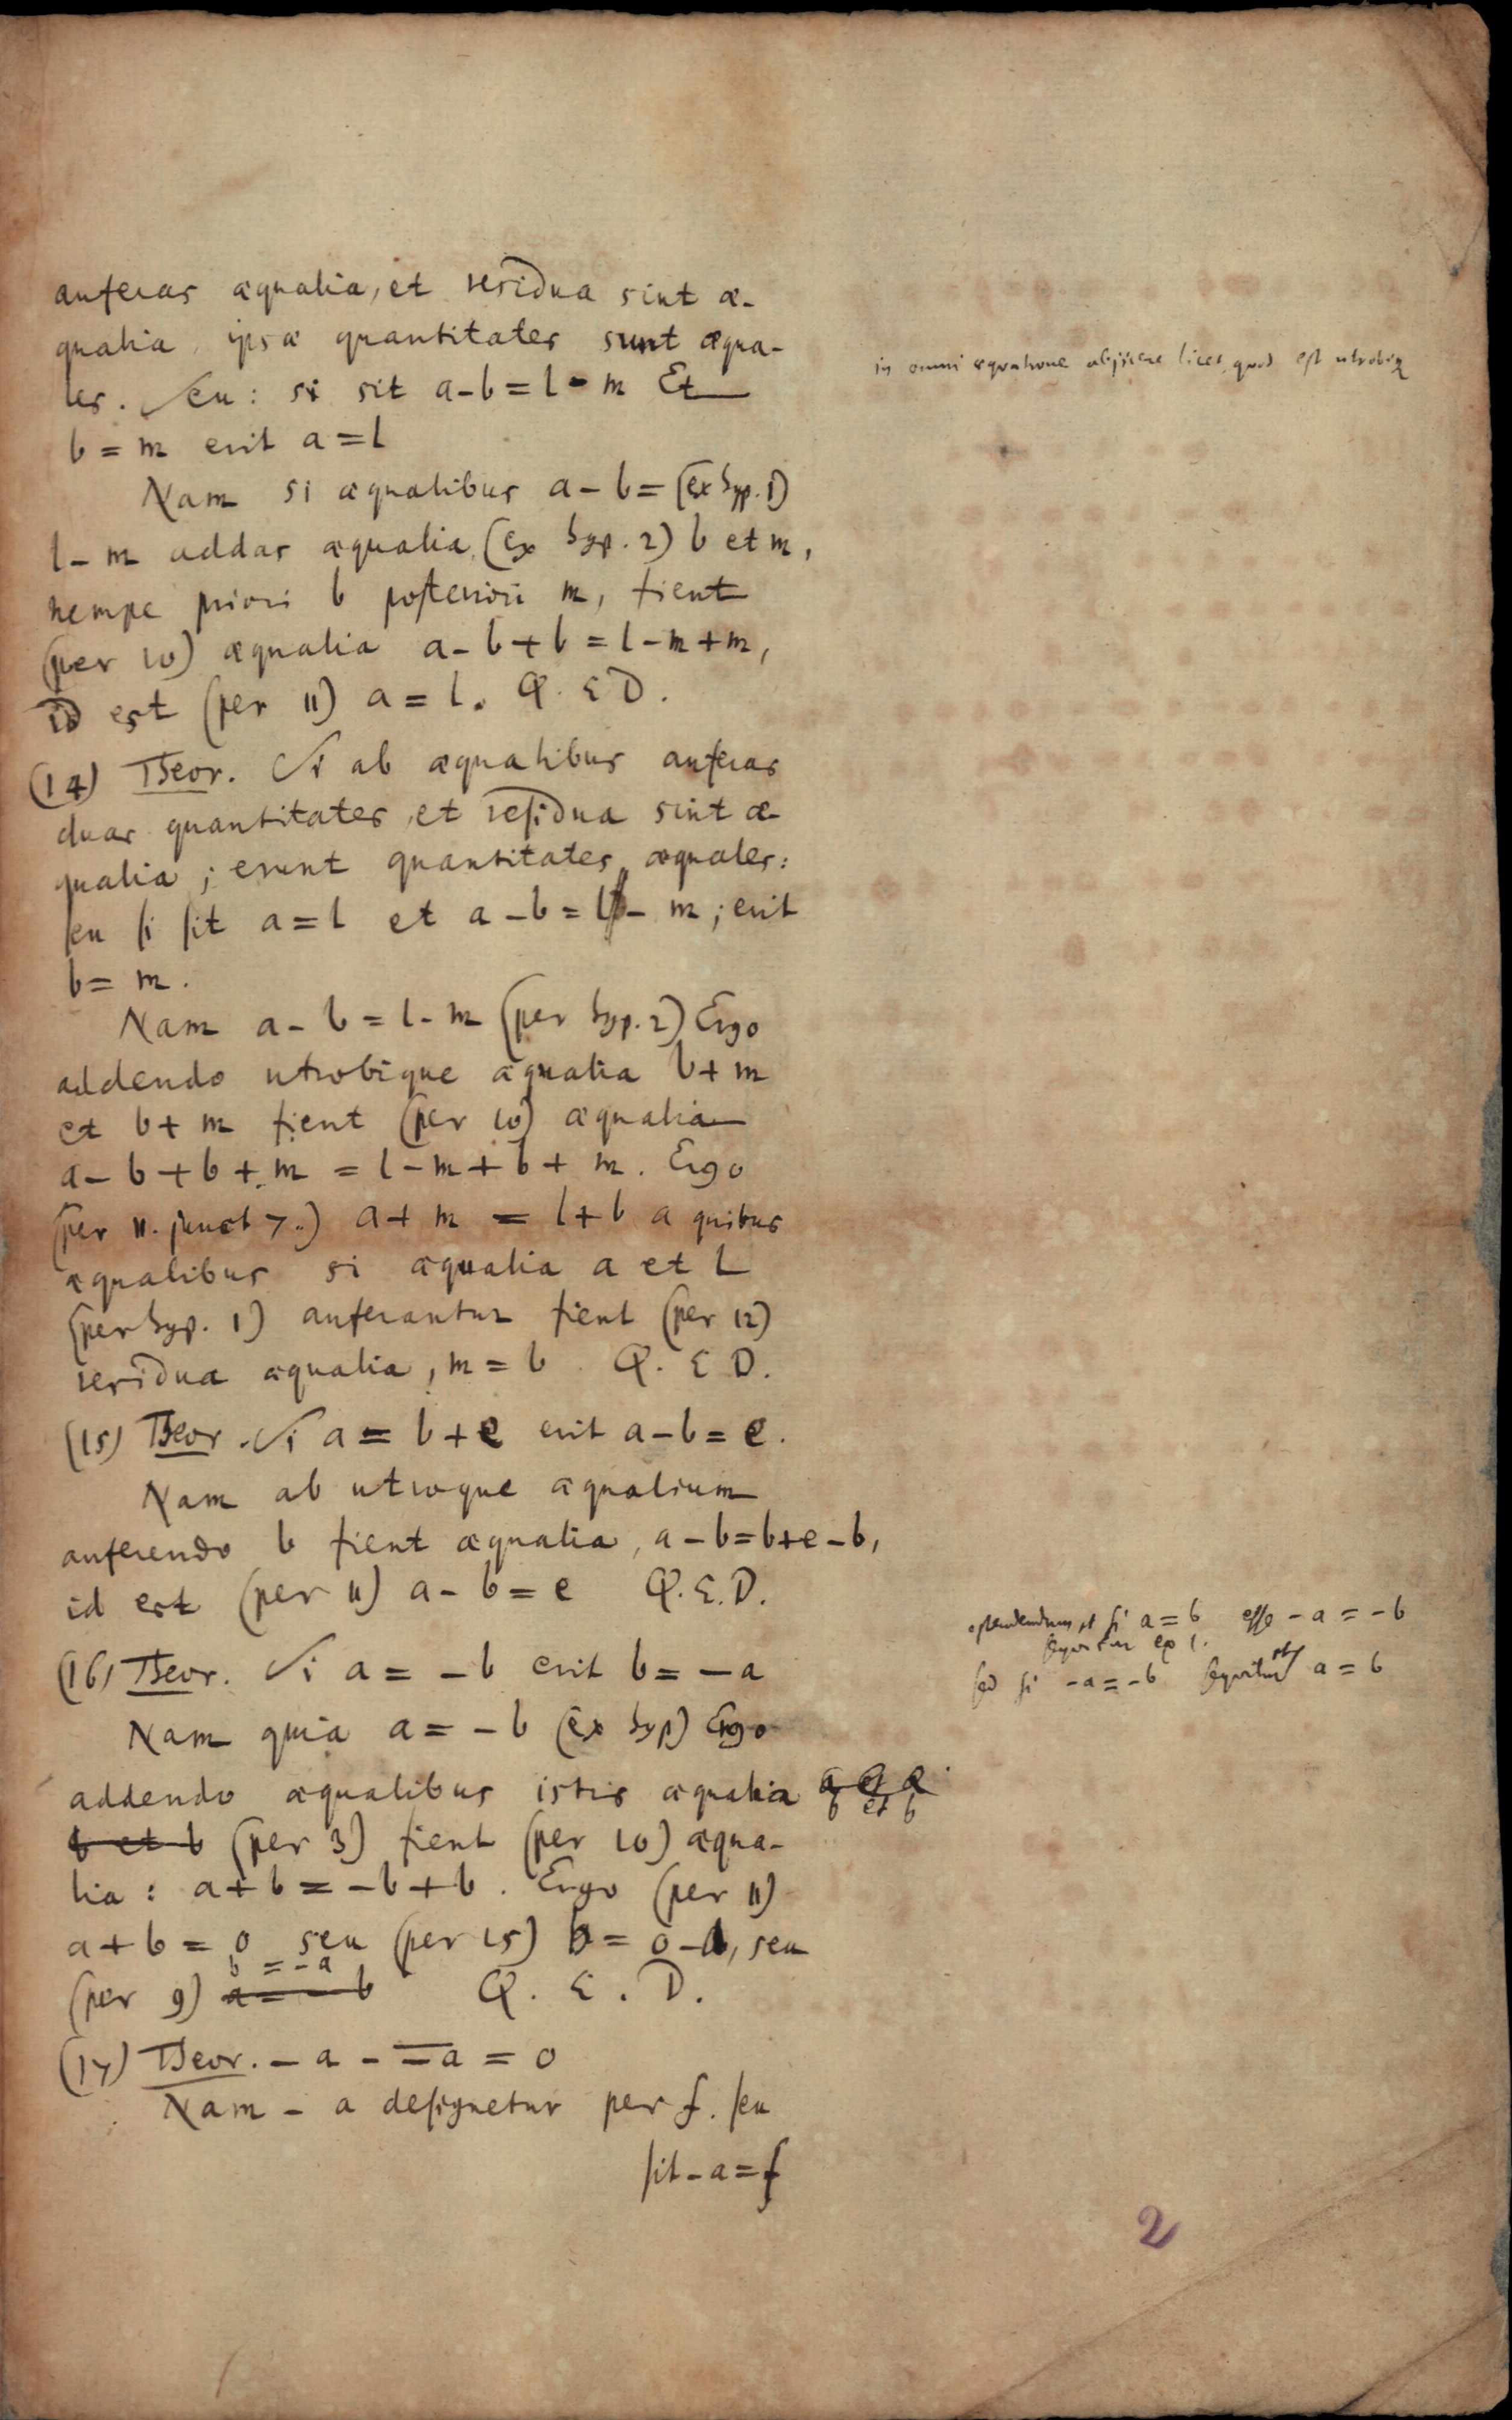 auferas æqualia, et residua sint æ-
qualia, ipsæ quantitates sunt æqua-
les. Seu: si sit a-b=l-m Et
b=m erit a=l
Nam si æqualibus a-b= (ex hyp. 1)
l-m addas æqualia (ex hyp. 2) b et m,
nempe priori b posteriori m, fient
(per 10) æqualia a-b+b=l-m+m,
id est (per 11) a=l. Q. E D.
(14) Theor. Si ab æqualibus auferas
duas quantitates, et residua sint æ-
qualia; erunt quantitates æquales:
seu si sit a=l et a-b=l-m; erit
b=m.
Nam a-b=l-m (per hyp. 2) Ergo
addendo utrobique æqualia b+m
et b+m fient (per 10) æqualia
a-b+b+m=l-m+b+m. Ergo
(per 11. junct 7.) a+m=l+b a quibus
æqualibus si æqualia a et L
(per hyp. 1) auferantur fient (per 12)
residua æqualia, m=b. Q. E D.
(15) Theor. Si a=b+e erit a-b=e.
Nam ab utroque æqualium
auferendo b fient æqualia, a-b=b+e-b,
id est (per 11) a-b=e Q.E.D.
(16) Theor. Si a=-b erit b=-a
Nam quia a=-b (ex hyp) Ergo
addendo æqualibus istis æqualia a et a
b et b
b et b (per 3) fient (per 10) æqua-
lia: a+b=-b+b. Ergo (per 11)
a+b=0 seu (per 15) b=0-a, seu
b=-a
(per 9) a=-b Q. E. D.
(17) Theor. -a--a=0
Nam -a designetur per f. seu
sit -a=f
in omni æquatione abjicere licet, quod est utrobiq
ostendendum, et si a=b esse -a=-b
sequitur ex 1.
sed si -a=-b sequitur a=b
2